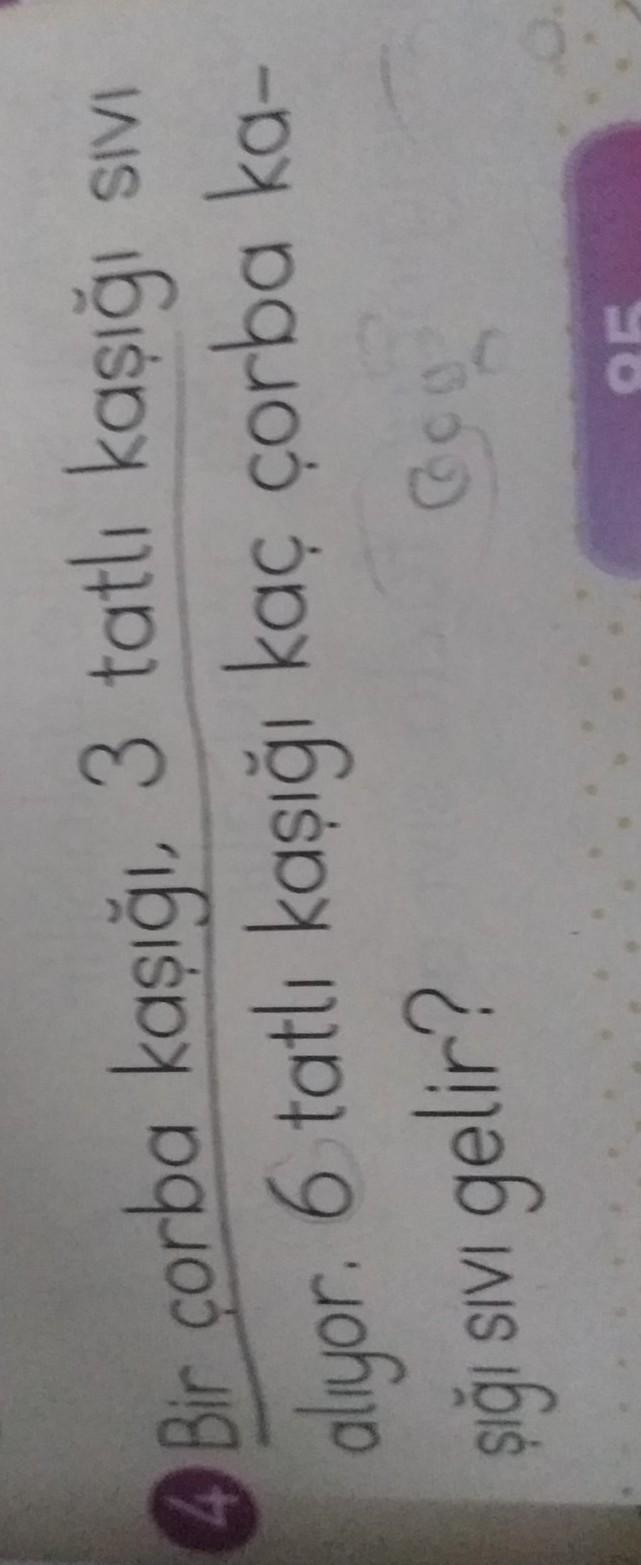 4 Bir çorba kaşığı, 3 tatlı kaşığı sıvı
alıyor. 6 tatlı kaşığı kaç çorba ka-
şığı sıvı gelir?